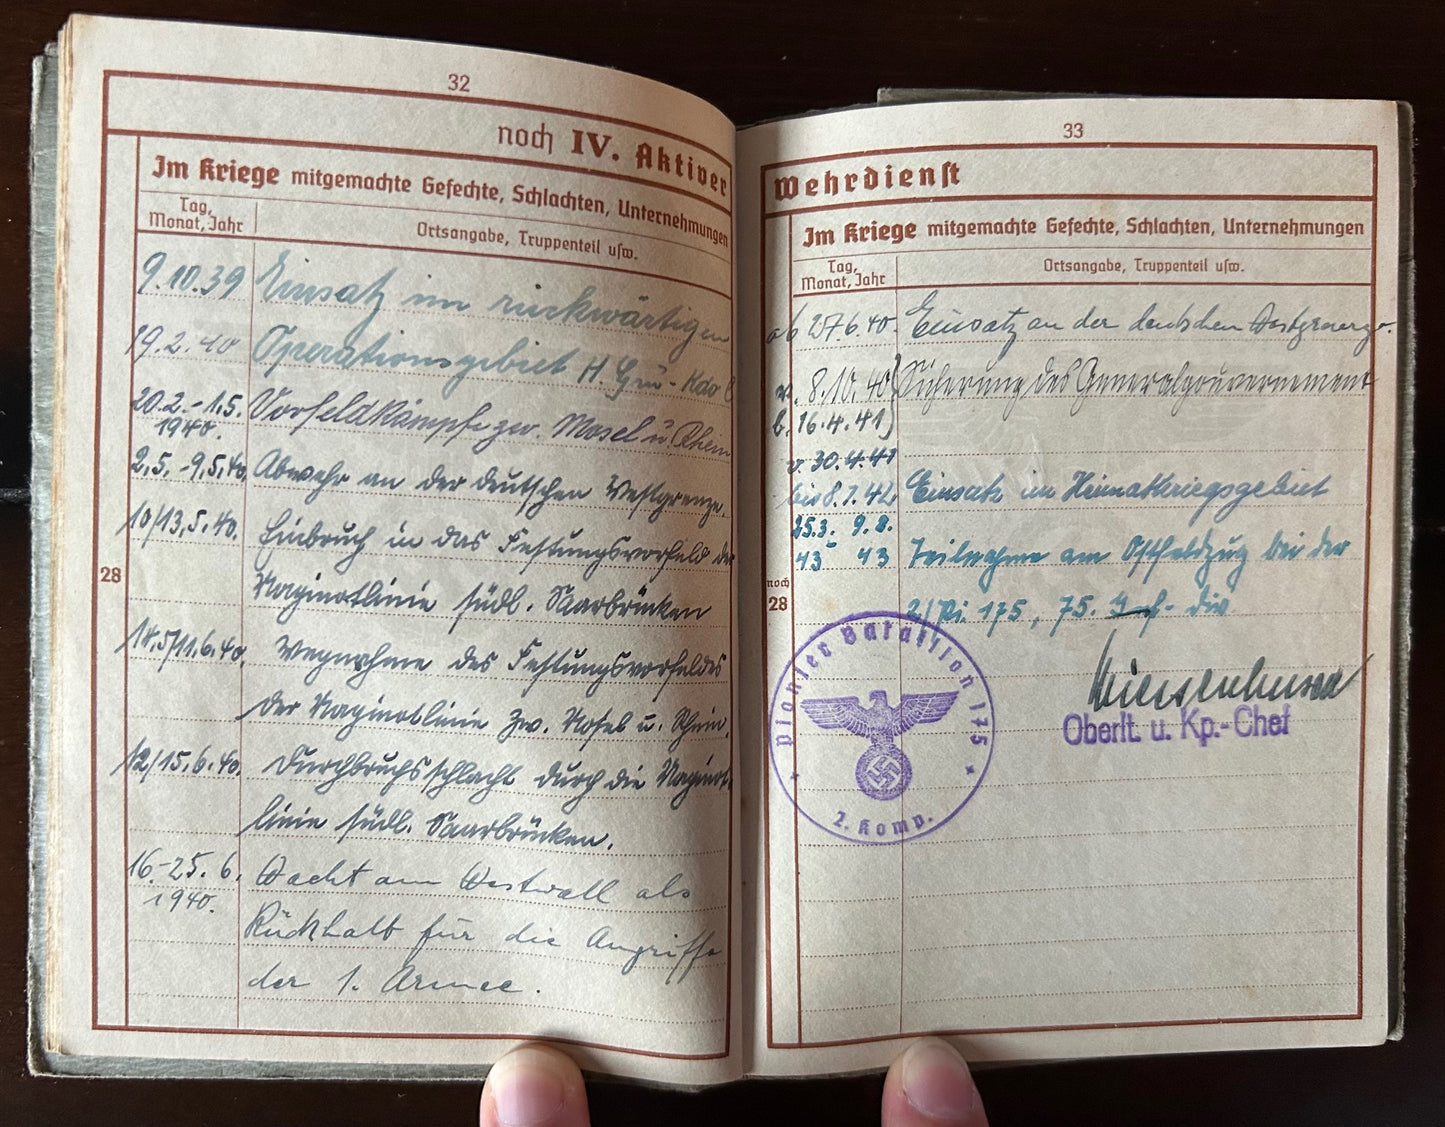 32
noch IV. Aktiver
Im Kriege mitgemachte Gefechte, Schlachten, Unternehmungen
Tag,
Monat, Jahr
Ortsangabe, Truppenteil usw.
9.10.39 Einsatz im rückwärtigen
19.2.40 Operationsgebiet H. Gru-Kdo C
20.2.-1.5. Vorfeldkämpfe zw. Mosel u. Rhein
1940.
2.5.-9.5.40. Abwehr an der deutschen Westgrenze.
10/13.5.40. Einbruch in das Festungsvorfeld der
Maginotlinie südl. Saarbrücken
28
14.5/11.6.40. Wegnahme des Festungsvorfeldes
der Maginotlinie zw. Mosel u. Rhein.
12/15.6.40. Durchbruchsschlacht durch die Maginot-
linie südl. Saarbrücken.
16.-25.6. Wacht am Westwall als
1940. Rückhalt für die Angriffe
der 1. Armee.
33
Wehrdienst
Im Kriege mitgemachte Gefechte, Schlachten, Unternehmungen
Tag,
Monat, Jahr
Ortsangabe, Truppenteil usw.
ab 27.6.40. Einsatz an der deutschen
v. 8.10.40 } Sicherung des Generalgouvernement
b. 16.4.41 }
v. 30.4.41
bis 8.7.42, Einsatz im Heimatkriegsgebiet
25.3. 9.8.
43 - 43 Teilnahme am Ostfeldzug bei der
noch
28
2/Pi. 175, 75. Inf. div
Pionier Bataillon 175
2. Komp.
Oberlt. u. Kp.-Chef